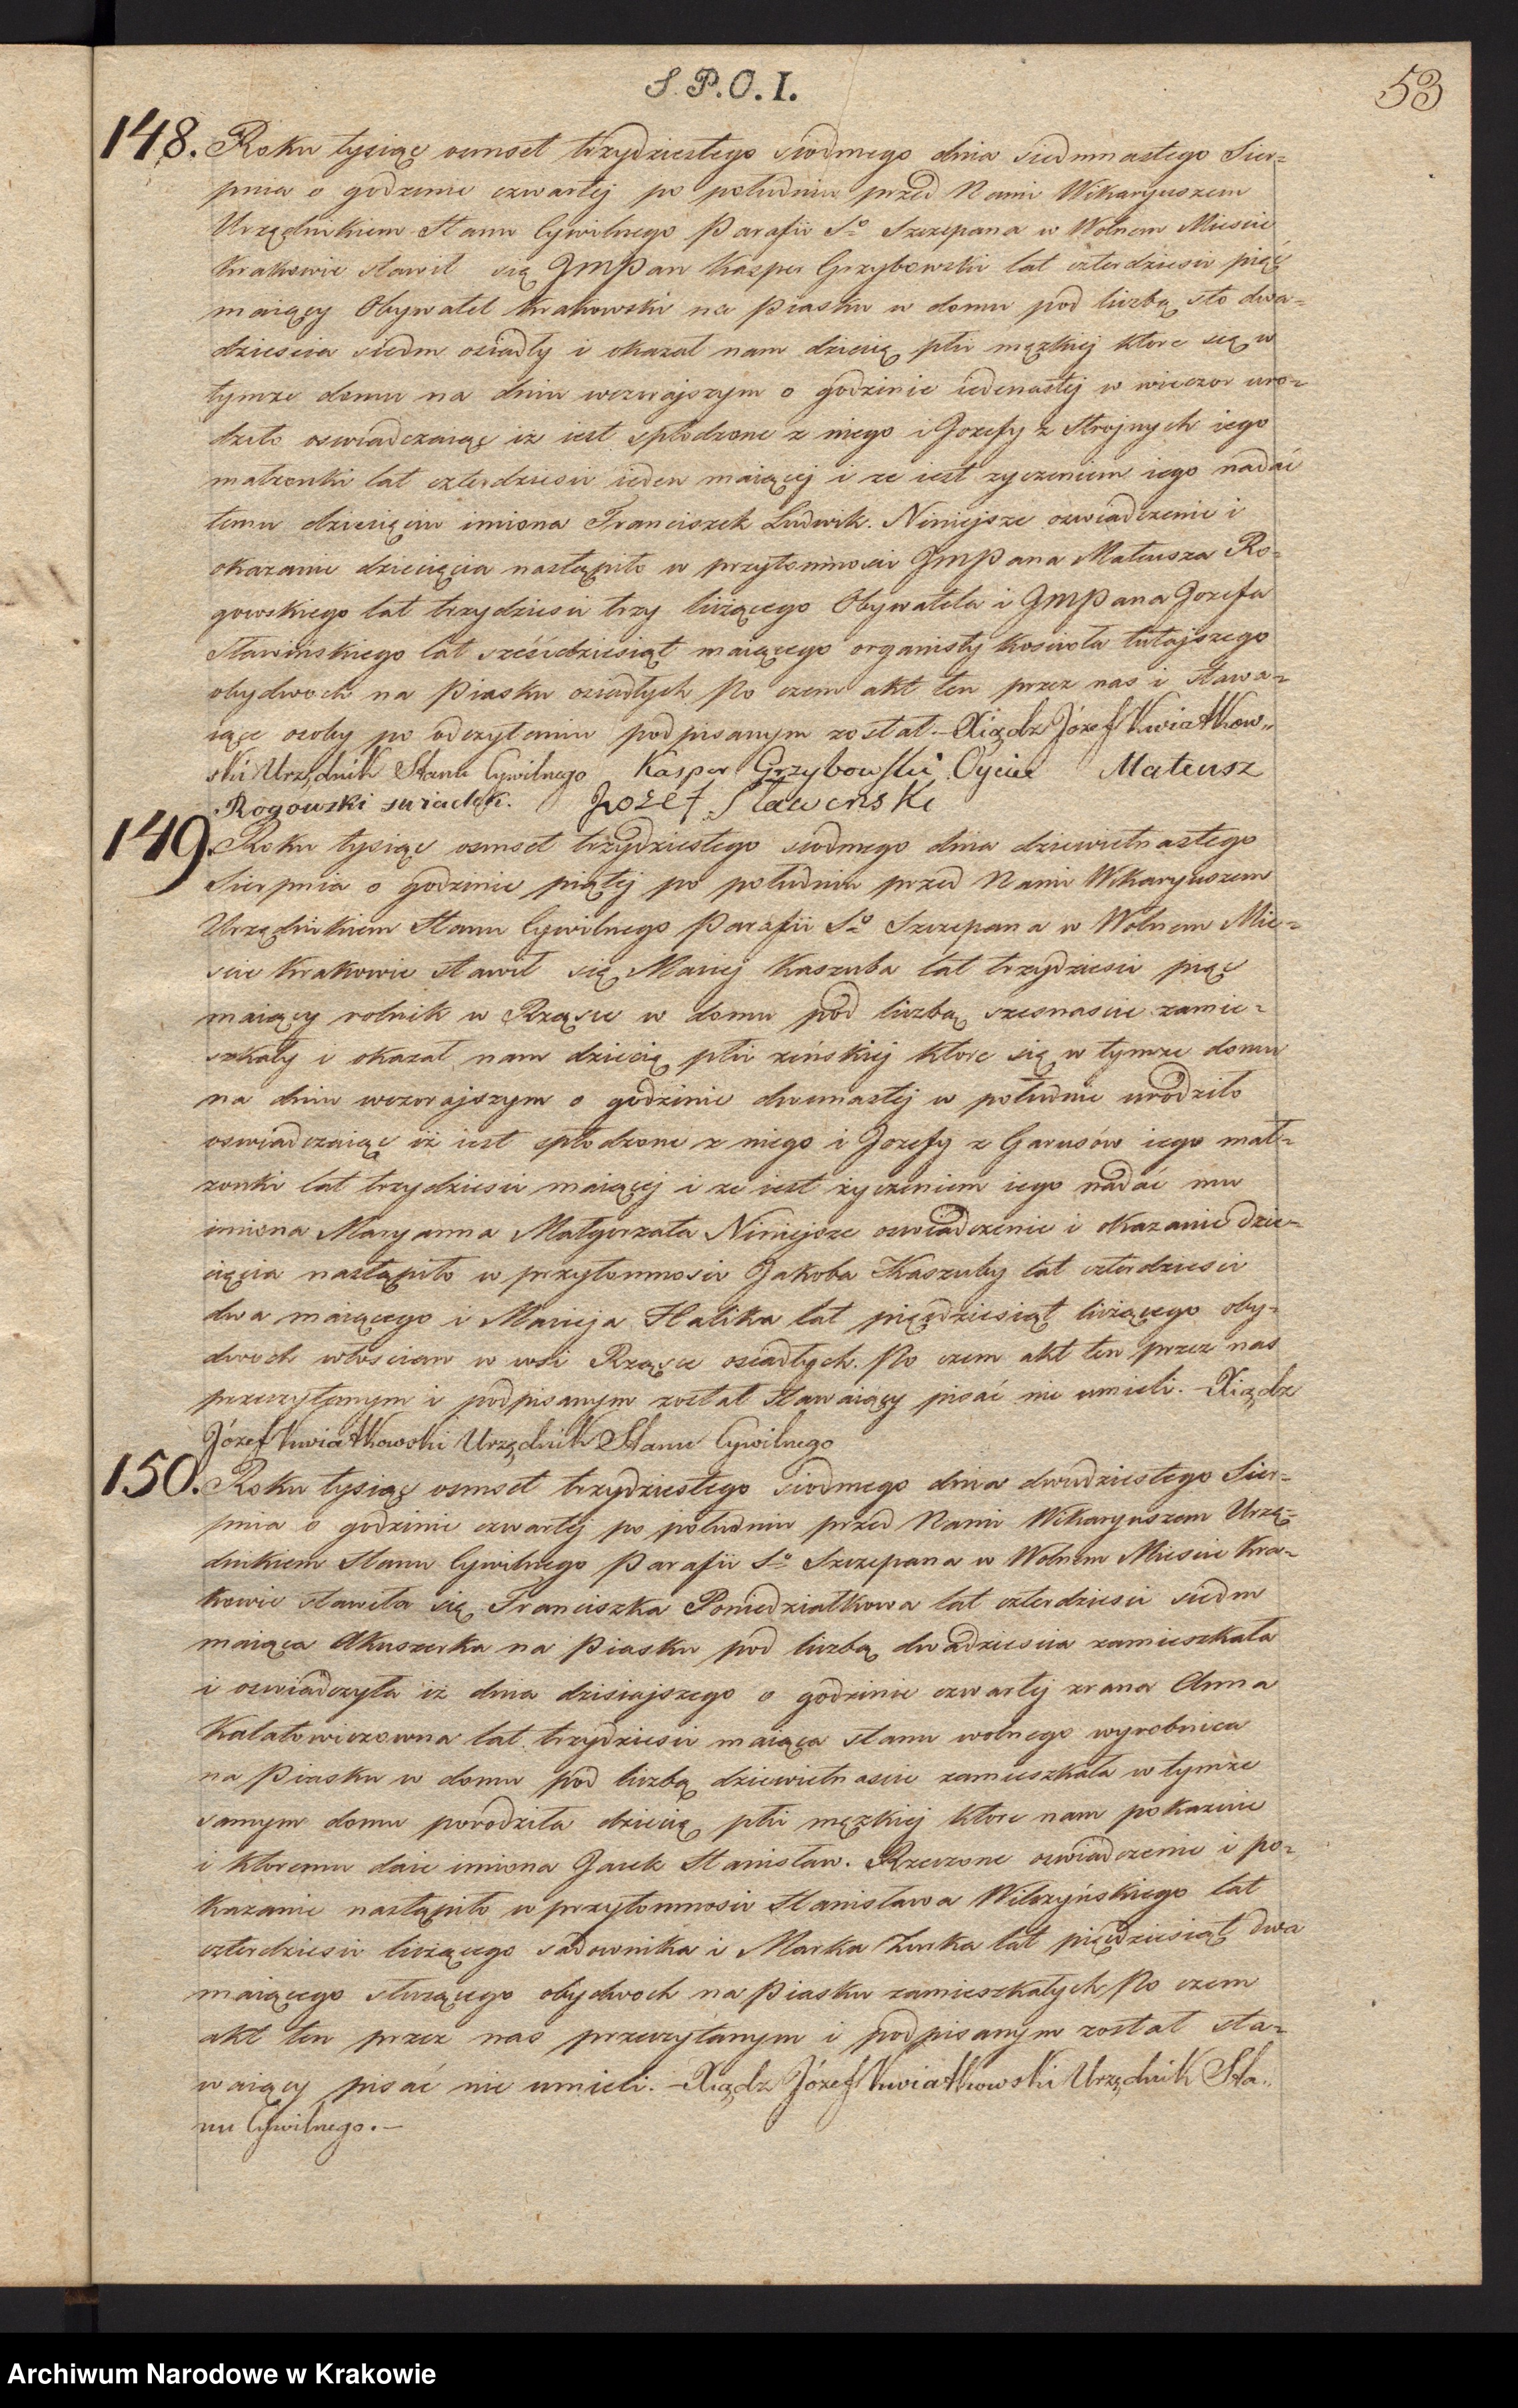 S. P. O. I.
53
148. Roku tysiąc osmset trzydziestego siodmego dnia siedmnastego Sier=
pnia o godzinie czwartej po południu przed Nami Wikaryuszem
Urzędnikiem Stanu Cywilnego Parafii So Szczepana w Wolnem Miescie
Krakowie stawił się JmPan Kasper Grzybowski lat czterdziesci pięć
maiący Obywatel Krakowski na Piasku w domu pod liczbą sto dwa=
dziescia siedm osiadły i okazał nam dziecię płci męzkiej które się w
tymże domu na dniu wczorajszym o godzinie iedenastej w wieczor uro=
dziło oswiadczaiąc iż iest spłodzone z niego i Jozefy z Strojnych iego
małzonki lat czterdziesci ieden maiącej i ze iest zyczeniem iego nadać
temu dziecięciu imiona Franciszek Ludwik. Niniejsze oswiadczenie i
okazanie dziecięcia nastąpiło w przytomnosci JmPana Mateusza Ro=
gowskiego lat trzydziesci trzy liczącego Obywatela i JMPana Jozefa
Sławinskiego lat sześcdziesiąt maiącego organisty kościoła tutajszego
obydwoch na Piasku osiadłych Po czem akt ten przez nas i stawa=
iące osoby po odczytaniu podpisanym został.- Xiądz Józef Kwiatkow„
ski Urzędnik Stanu Cywilnego Kasper Grzybowski Oyciec Mateusz
Rogowski swiadek. Jozef Sławinski
149. Roku tysiąc osmset trzydziestego siodmego dnia dziewietnastego
Sierpnia o godzinie piątej po południu przed Nami Wikaryuszem
Urzędnikiem Stanu Cywilnego Parafii So Szczepana w Wolnem Mie=
scie Krakowie stawił się Maciej Kaszuba lat trzydziesci pięć
maiący rolnik w Rząsce w domu pod liczbą szesnascie zamie=
szkały i okazał nam dziecię płci zeńskiej które się w tymze domu
na dniu wczorajszym o godzinie dwunastej w południe urodziło
oswiadczaiąc iż iest spłodzone z niego i Jozefy z Garusów iego mał=
zonki lat trzydziesci maiącej i ze iest życzeniem iego nadać mu
imiona Maryanna Małgorzata Niniejsze oswiadczenie i okazanie dzie=
cięcia nastąpiło w przytomnosci Jakoba Kaszuby lat czterdziesci
dwa maiącego i Macieja Halika lat pięcdziesiąt liczącego oby=
dwoch włoscian w wsi Rząsce osiadłych. Po czem akt ten przez nas
przeczytanym i podpisanym został stawaiący pisać nie umieli.- Xiądz
Józef Kwiatkowski Urzędnik Stanu Cywilnego
150. Roku tysiąc osmset trzydziestego siodmego dnia dwudziestego Sier=
pnia o godzinie czwartej po południu przed Nami Wikaryuszem Urzę=
dnikiem Stanu Cywilnego Parafii So Szczepana w Wolnem Miescie Kra=
kowie stawiła się Franciszka Poniedziałkowa lat czterdziesci siedm
maiąca Akuszerka na Piasku pod liczbą dwadziescia zamieszkała
i oswiadczyła iż dnia dzisiajszego o godzinie czwartej zrana Anna
Kalatowiczowna lat trzydziesci maiąca stanu wolnego wyrobnica
na Piasku w domu pod liczbą dziewietnascie zamieszkała w tymze
samym domu porodziła dziecię płci męzkiej które nam pokazuie
i któremu daie imiona Jacek Stanisław. Rzeczone oswiadczenie i po=
kazanie nastąpiło w przytomnosci Stanisława Wilczyńskiego lat
czterdziesci liczącego sadownika i Marka Zurka lat pięcdziesiąt dwa
maiącego służącego obydwoch na Piasku zamieszkałych Po czem
akt ten przez nas przeczytanym i podpisanym został sta=
waiący pisać nie umieli.- Xiądz Józef Kwiatkowski Urzędnik Sta„
nu Cywilnego.-
Archiwum Narodowe w Krakowie